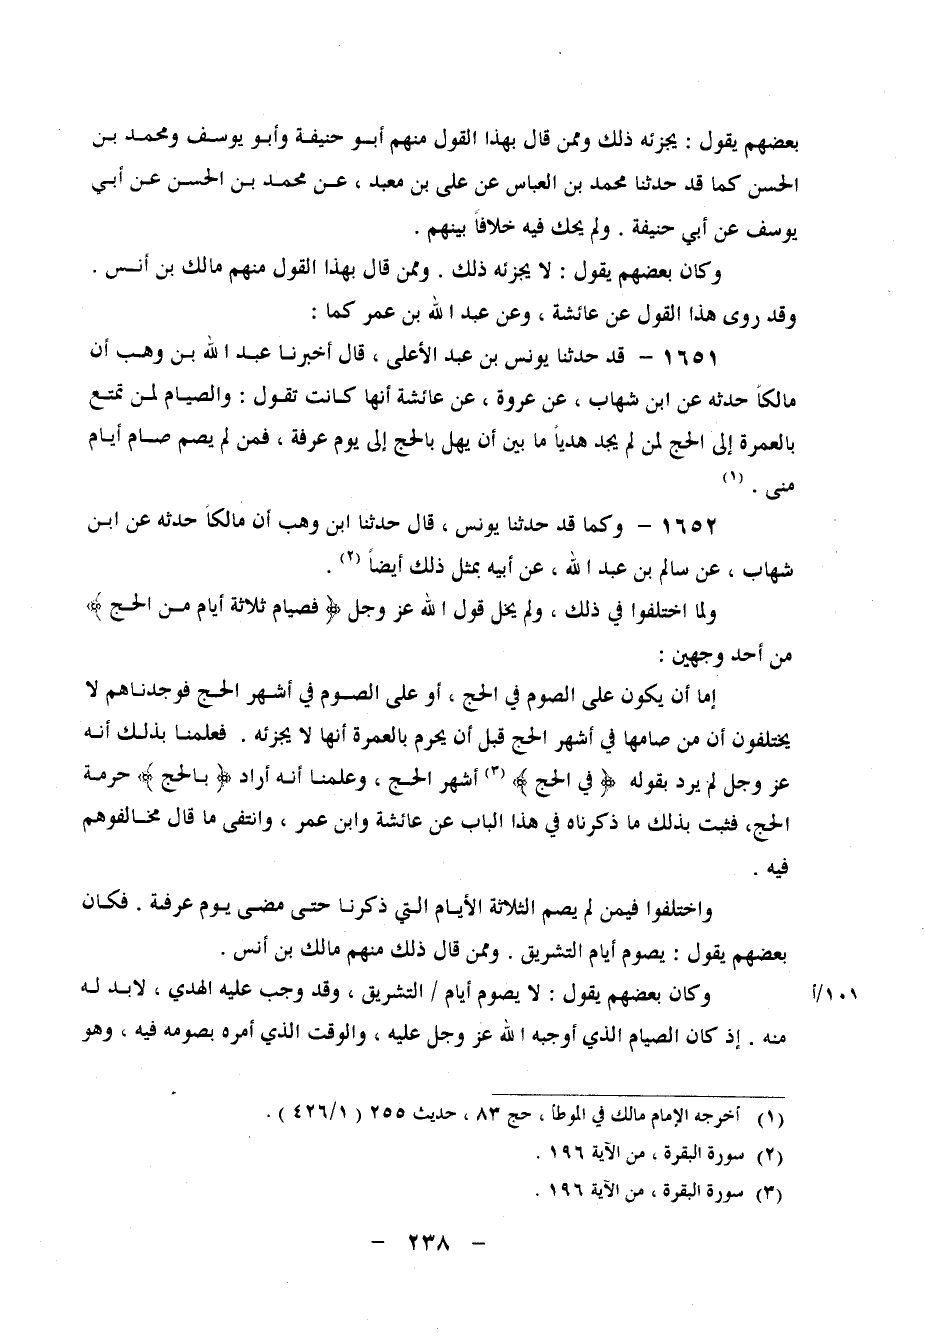 بعضهم يقول : يجزئه ذلك وممن قال بهذا القول منهم أبو حنيفة وأبو يوسف ومحمد بن
الحسن كما قد حدثنا محمد بن العباس عن على بن معبد ، عن محمد بن الحسن عن أبي
يوسف عن أبي حنيفة . ولم يحك فيه خلافاً بينهم .
وكان بعضهم يقول : لا يجزئه ذلك . وممن قال بهذا القول منهم مالك بن أنس .
وقد روى هذا القول عن عائشة ، وعن عبد الله بن عمر كما :
١٦٥١ – قد حدثنا يونس بن عبد الأعلى ، قال أخبرنا عبد الله بن وهب أن
مالكاً حدثه عن ابن شهاب ، عن عروة ، عن عائشة أنها كانت تقول : والصيام لمن تمتع
بالعمرة إلى الحج لمن لم يجد هدياً ما بين أن يهل بالحج إلى يوم عرفة ، فمن لم يصم صام أيام
منى . (١)
١٦٥٢ – وكما قد حدثنا يونس ، قال حدثنا ابن وهب أن مالكاً حدثه عن ابن
شهاب ، عن سالم بن عبد الله ، عن أبيه بمثل ذلك أيضاً (٢) .
ولما اختلفوا في ذلك ، ولم يخل قول الله عز وجل ﴿ فصيام ثلاثة أيام من الحج ﴾
من أحد وجهين :
إما أن يكون على الصوم في الحج ، أو على الصوم في أشهر الحج فوجدناهم لا
يختلفون أن من صامها في أشهر الحج قبل أن يحرم بالعمرة أنها لا يجزئه . فعلمنا بذلك أنه
عز وجل لم يرد بقوله ﴿ في الحج ﴾ (٣) أشهر الحج ، وعلمنا أنه أراد ﴿ بالحج ﴾ حرمة
الحج، فثبت بذلك ما ذكرناه في هذا الباب عن عائشة وابن عمر ، وانتفى ما قال مخالفوهم
فيه .
واختلفوا فيمن لم يصم الثلاثة الأيام التي ذكرنا حتى مضى يوم عرفة . فكان
بعضهم يقول : يصوم أيام التشريق . وممن قال ذلك منهم مالك بن أنس .
١٠١/أ وكان بعضهم يقول : لا يصوم أيام / التشريق ، وقد وجب عليه الهدي ، لابد له
منه . إذ كان الصيام الذي أوجبه الله عز وجل عليه ، والوقت الذي أمره بصومه فيه ، وهو
(١) أخرجه الإمام مالك في الموطأ ، حج ٨٣ ، حديث ٢٥٥ ( ٤٢٦/١ ) .
(٢) سورة البقرة ، من الآية ١٩٦ .
(٣) سورة البقرة ، من الآية ١٩٦ .
– ٢٣٨ –